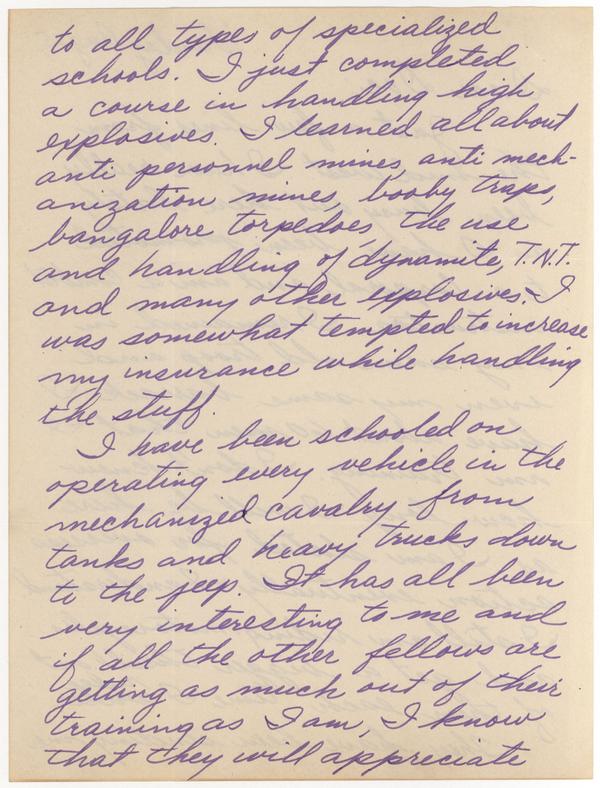 to all types of specialized
schools. I just completed
a course in handling high
explosives. I learned all about
anti personnel mines, anti mech-
anization mines, booby traps,
bangalore torpedoes, the use
and handling of dynamite, T.N.T.
and many other explosives. I
was somewhat tempted to increase
my insurance while handling
the stuff.
I have been schooled on
operating every vehicle in the
mechanized cavalry from
tanks and heavy trucks down
to the jeep. It has all been
very interesting to me and
if all the other fellows are
getting as much out of their
training as I am, I know
that they will appreciate